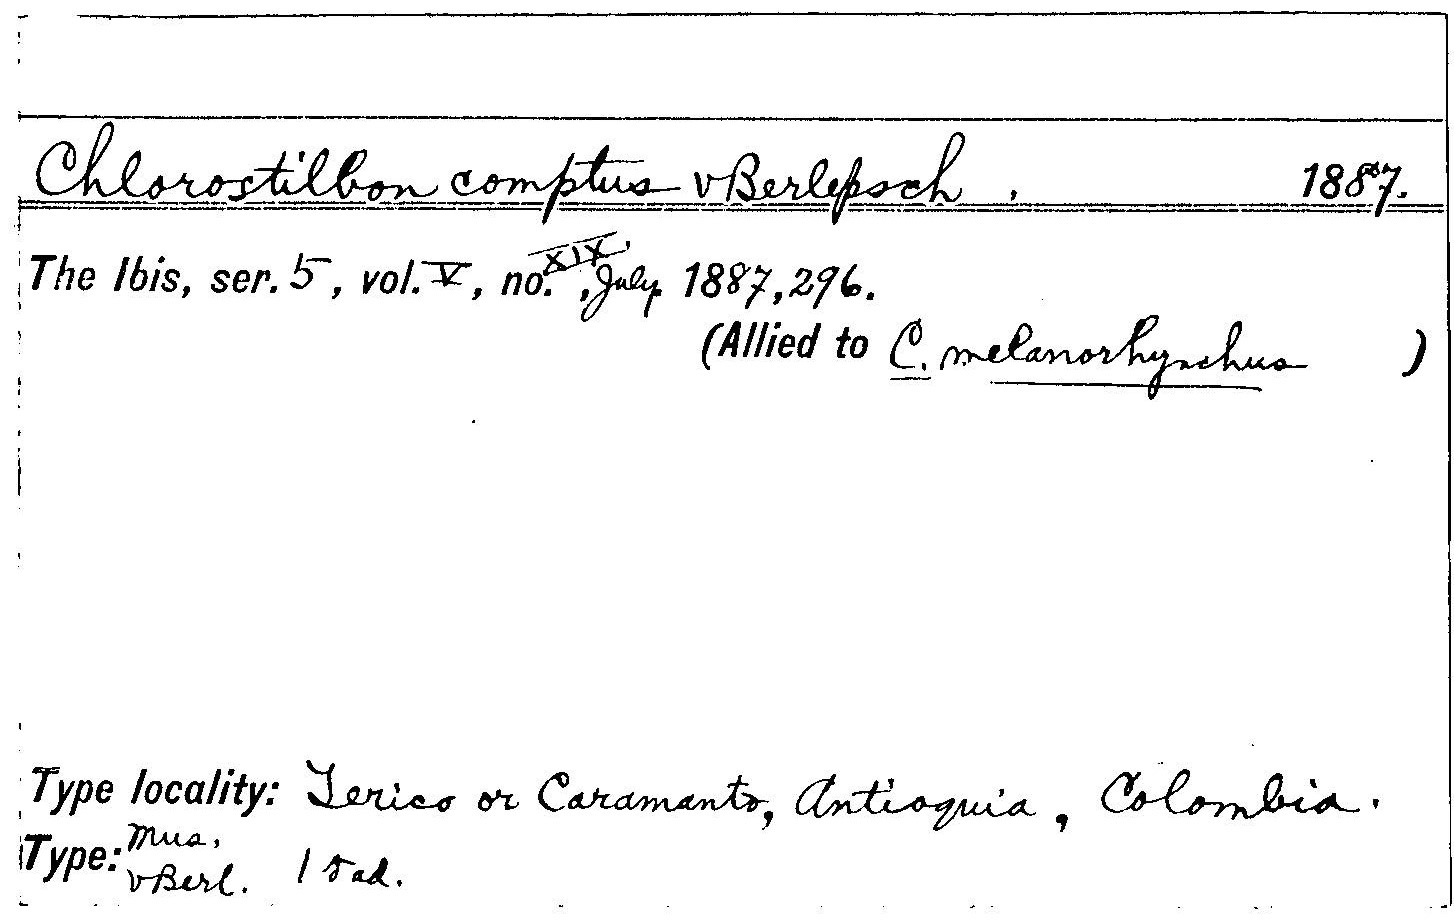 Chlorostilbon comptus vBerlepsch . 1887.
The Ibis, ser. 5, vol. V, no. XIX, July 1887, 296.
(Allied to C. melanorhynchus )
Type locality: Jerico or Caramanto, Antioquia, Colombia.
Type: Mus. vBerl. 1 ♂ ad.